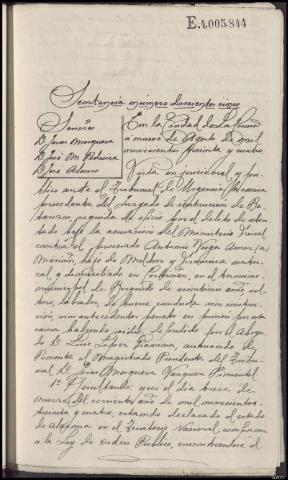 E.4.005.844
Sentencia número doscientos cinco
Señores
D. Juan Mosquera
D. José M. Pedreira
D. José Alonso
En la Ciudad de La Coruña
a nueve de Agosto de mil
novecientos treinta y cuatro
Vista en juicio oral y pú-
blico ante el Tribunal de Urgencia, la causa
procedente del Juzgado de instrucción de Be-
tanzos, seguida de oficio por el delito de aten-
tado bajo la acusación del Ministerio Fiscal
contra el procesado Antonio Veiga Amor (a)
Mariñán, hijo de Melchor y Francisca, natu-
ral y domiciliado en, en el término
municipal de Bergondo de veinticinco años, sol-
tero, labrador, de buena conducta sin instruc-
ción, sin antecedentes penales en prisión por esta
causa habiendo sido defendido por el Aboga-
do D. Luis López Pardo, actuando de
Ponente el Magistrado Presidente del Tribu-
nal D. Juan Mosquera Vázquez Pimentel
1º Resultando: que el día trece de
Marzo del corriente año de mil novecientos
treinta y cuatro, estando declarado el estado
de alarma en el Territorio Nacional, conforme
a la Ley de Orden Público, encontrándose el